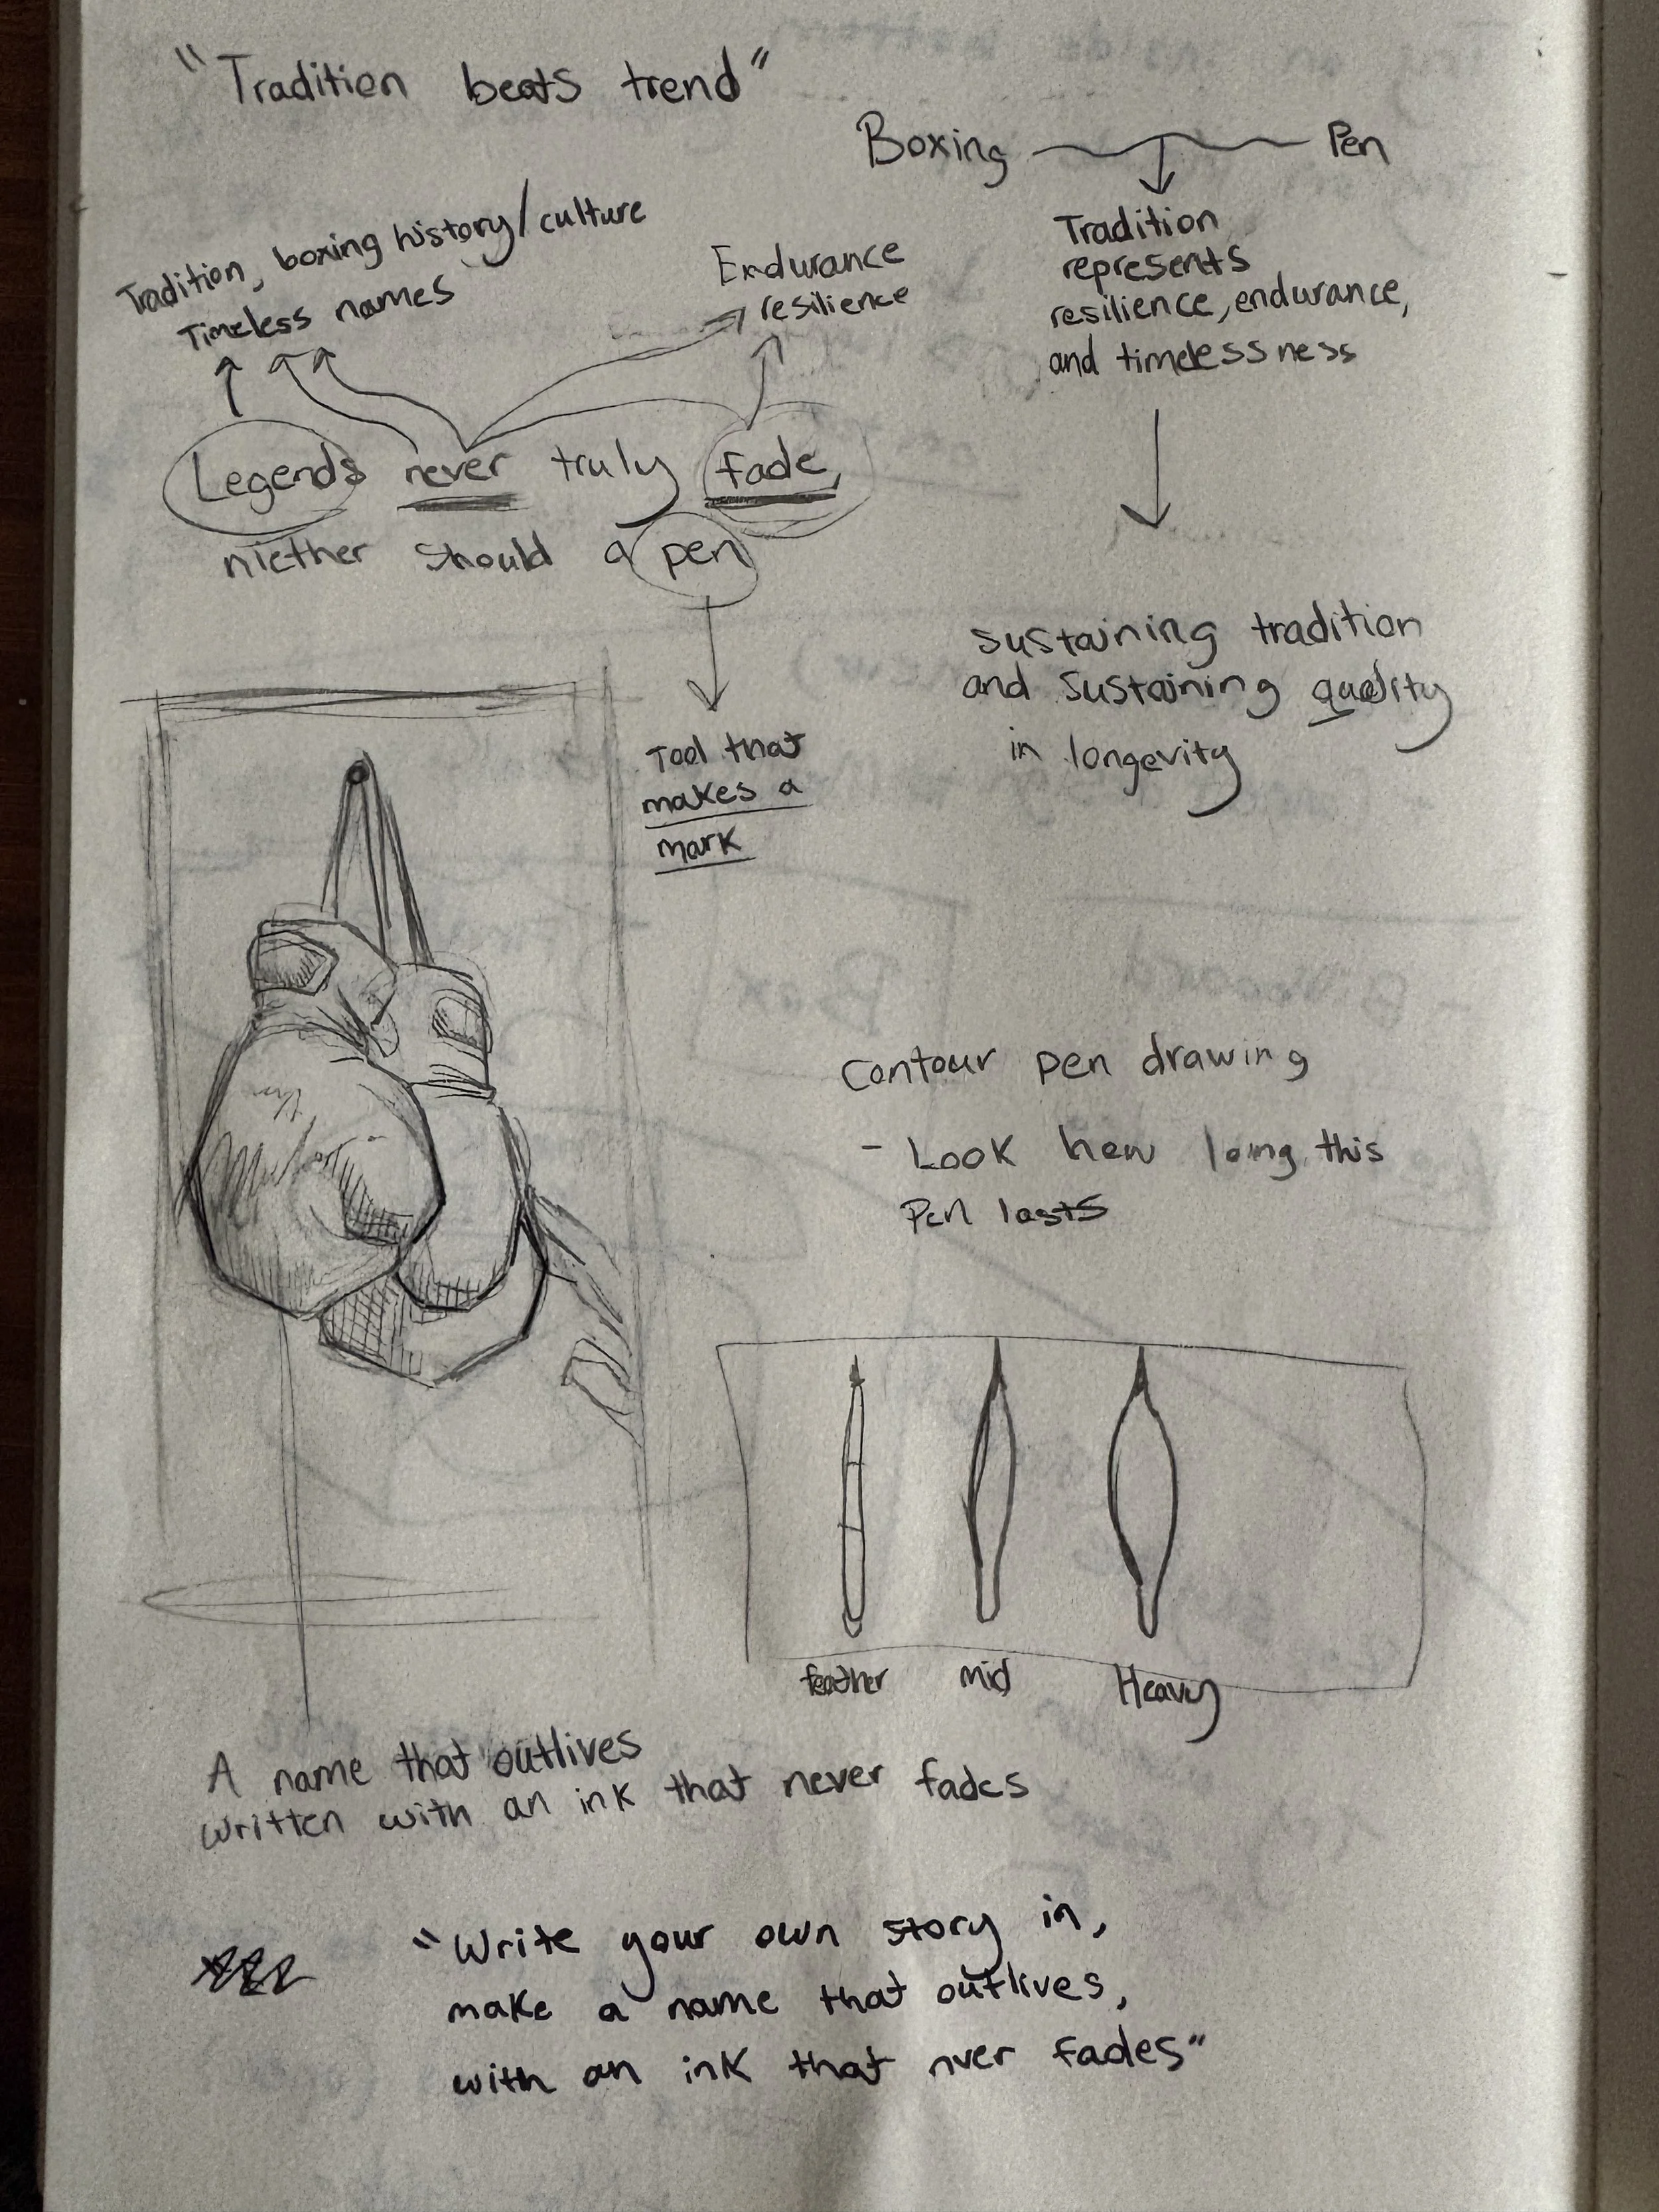 "Tradition beats trend"
Boxing Pen
Tradition
represents
resilience, endurance,
and timelessness
Tradition, boxing history/culture
Timeless names
Endurance
resilience
Legends never truly fade,
niether should a pen
Tool that
makes a
mark
sustaining tradition
and sustaining quality
in longevity
Contour pen drawing
- Look how long this
Pen lasts
feather Mid Heavy
A name that outlives
written with an ink that never fades
"Write your own story in,
make a name that outlives,
with an ink that nver fades"